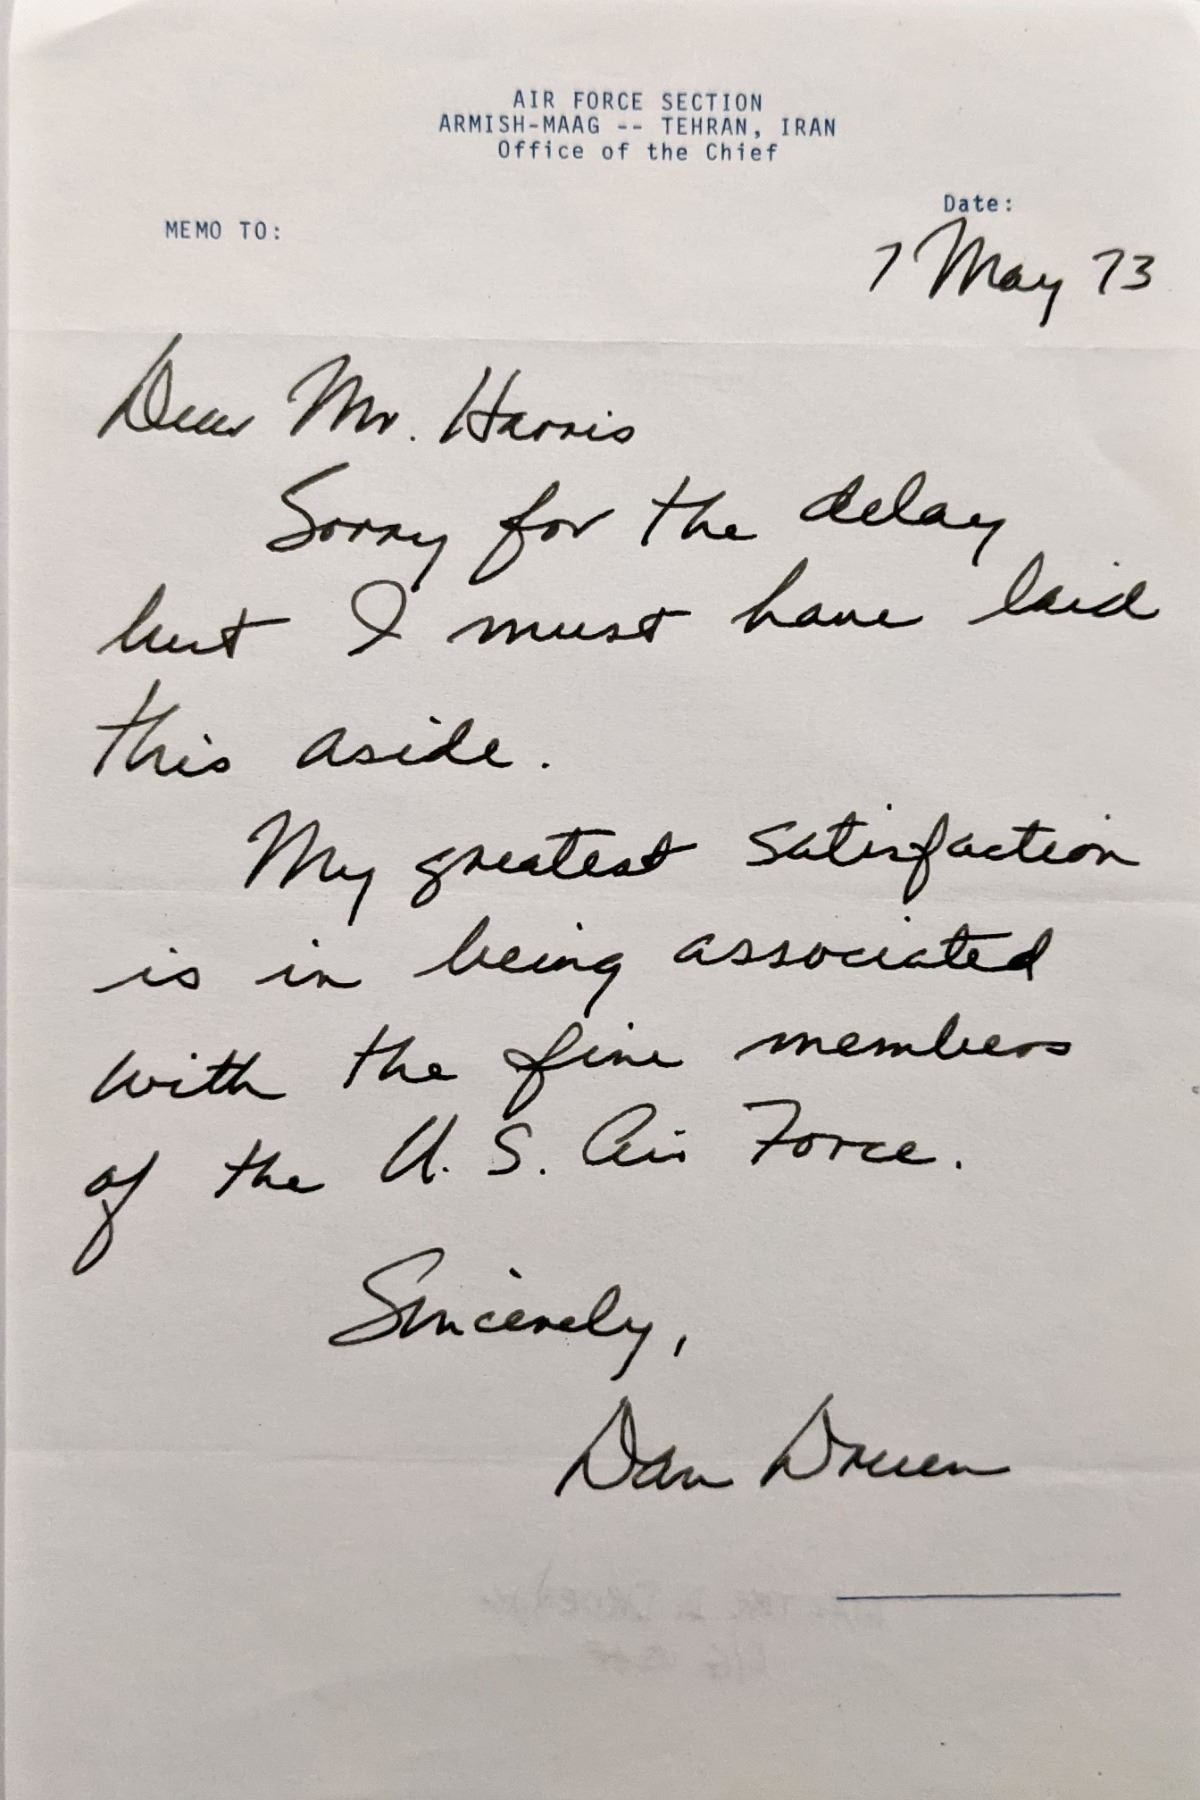 AIR FORCE SECTION
ARMISH-MAAG -- TEHRAN, IRAN
Office of the Chief
Date:
MEMO TO:
7 May 73
Dear Mr. Harris
Sorry for the delay
but I must have laid
this aside.
My greatest satisfaction
is in being associated
with the fine members
of the U. S. Air Force.
Sincerely,
Dan Druen